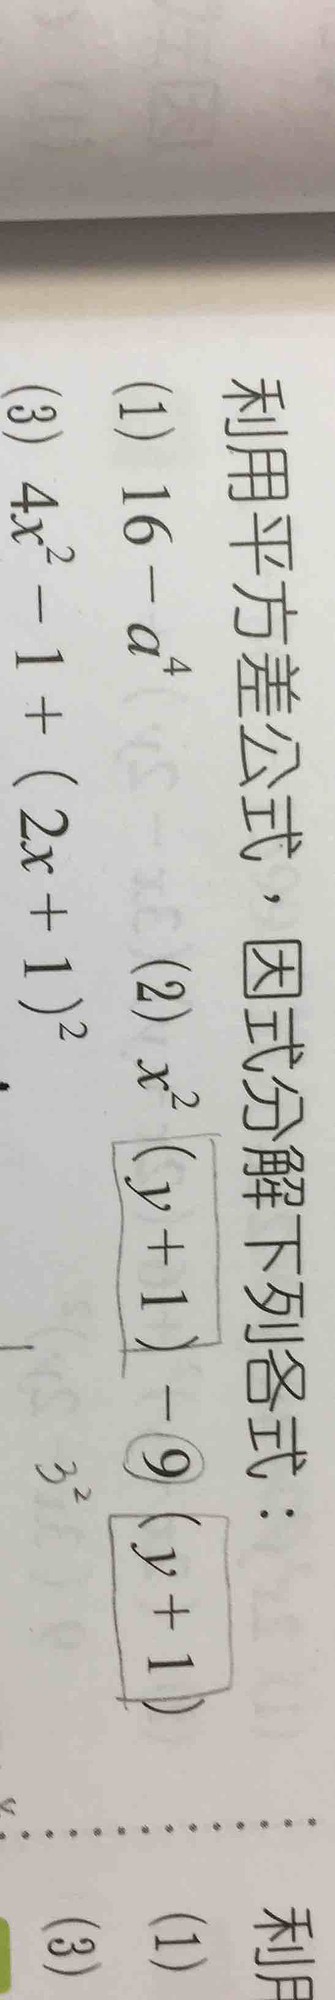 利用平方差公式，因式分解下列各式：
(1) 16－a⁴ (2) x²(y＋1)－9(y＋1)
3²
(3) 4x²－1＋(2x＋1)²
利用
(1)
(3)